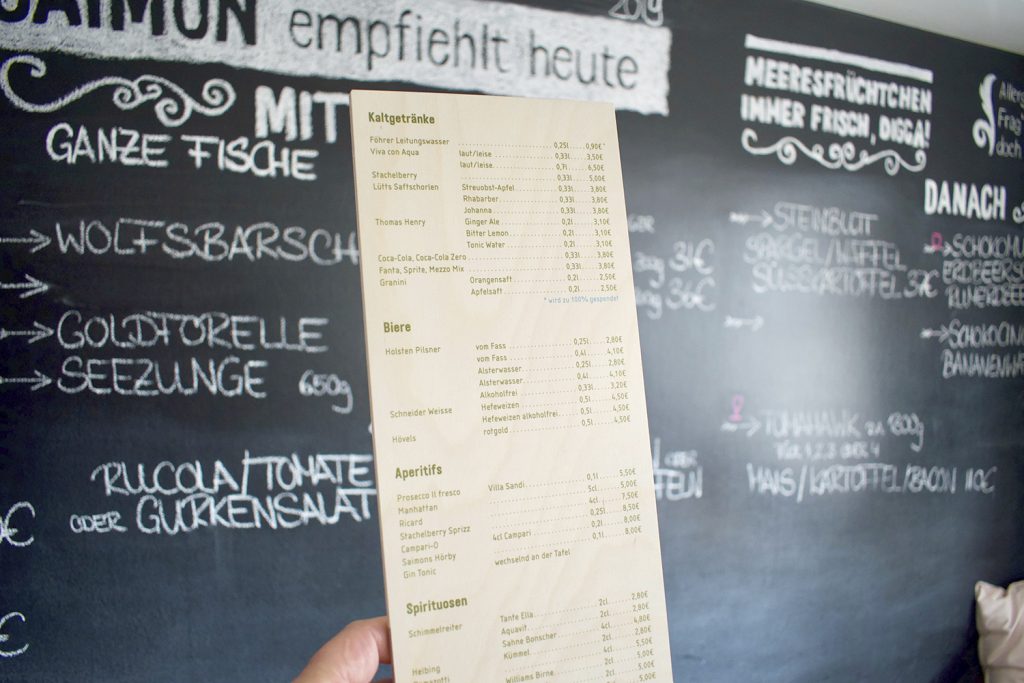 SAIMON empfiehlt heute
2019
MIT
GANZE FISCHE
WOLFSBARSCH
GOLDFORELLE
SEEZUNGE 650g
RUCOLA/TOMATE
ODER GURKENSALAT
€
€
Kaltgetränke
Föhrer Leitungswasser 0,25l 0,90€*
Viva con Aqua laut/leise 0,33l 3,50€
laut/leise 0,7l 6,50€
Stachelberry 0,33l 5,00€
Lütts Saftschorlen Streuobst-Apfel 0,33l 3,80€
Rhabarber 0,33l 3,80€
Johanna 0,33l 3,80€
Thomas Henry Ginger Ale 0,2l 3,10€
Bitter Lemon 0,2l 3,10€
Tonic Water 0,2l 3,10€
Coca-Cola, Coca-Cola Zero 0,33l 3,80€
Fanta, Sprite, Mezzo Mix 0,33l 3,80€
Granini Orangensaft 0,2l 2,50€
Apfelsaft 0,2l 2,50€
* wird zu 100% gespendet
Biere
Holsten Pilsner vom Fass 0,25l 2,80€
vom Fass 0,4l 4,10€
Alsterwasser 0,25l 2,80€
Alsterwasser 0,4l 4,10€
Alkoholfrei 0,33l 3,20€
Schneider Weisse Hefeweizen 0,5l 4,50€
Hefeweizen alkoholfrei 0,5l 4,50€
Hövels rotgold 0,5l 4,50€
Aperitifs
Prosecco Il fresco Villa Sandi 0,1l 5,50€
Manhattan 5cl 5,00€
Ricard 4cl 7,50€
Stachelberry Sprizz 0,25l 8,50€
Campari-O 4cl Campari 0,2l 8,00€
Saimons Hörby 0,1l 8,00€
Gin Tonic wechselnd an der Tafel
Spirituosen
Schimmelreiter Tante Ella 2cl 2,80€
Aquavit 2cl 2,80€
Sahne Bonscher 4cl 4,80€
Helbing Kümmel 2cl 2,80€
4cl 5,50€
Williams Birne 2cl 5,00€
2cl 5,00€
31€
36€
MEERESFRÜCHTCHEN
IMMER FRISCH, DIGGA!
STEINBUTT
SPARGEL/KARTOFFEL
SÜSSKARTOFFEL 37€
TOMAHAWK ca. 1800g
MAIS/KARTOFFEL/BACON 110€
Frag
doch
DANACH